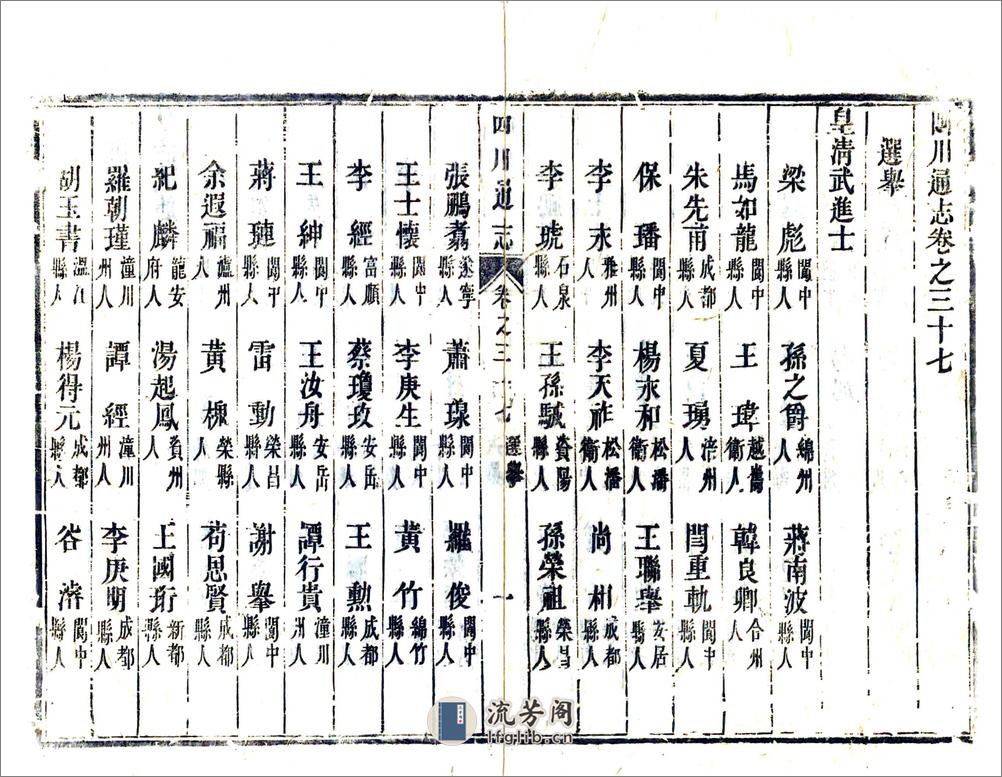 四川通志卷之三十七
選舉
皇清武進士
梁彪閬中縣人 孫之爵綿州人 蔣南波閬中縣人
馬如龍閬中縣人 王瑋越巂衞人 韓良卿合州人
朱先甫成都縣人 夏瑪涪州人 閆重軌閬中縣人
保璠閬中縣人 楊永和松潘衞人 王聯舉安居縣人
李永雅州人 李天祚松潘衞人 尚相成都縣人
李琥石泉縣人 王孫駥資陽縣人 孫榮祖榮昌縣人
四川通志 卷之三十七 選舉 一
張鵬翥遂寧縣人 蕭瑔閬中縣人 羅俊閬中縣人
王士懷閬中縣人 李庚生閬中縣人 黃竹綿竹縣人
李經富順縣人 蔡瓊玫安岳縣人 王勲成都縣人
王紳閬中縣人 王汝舟安岳縣人 譚行貴潼川州人
蔣璉閬中縣人 雷動榮昌縣人 謝舉閬中縣人
余遐福瀘州人 黃槻榮縣人 苟思賢成都縣人
紀麟龍安府人 湯起鳳夔州人 王國珩新都縣人
羅朝瑾潼川州人 譚經潼川州人 李庚明成都縣人
胡玉書溫江縣人 楊得元成都縣人 谷濟閬中縣人
流芳阁
lfglib.cn